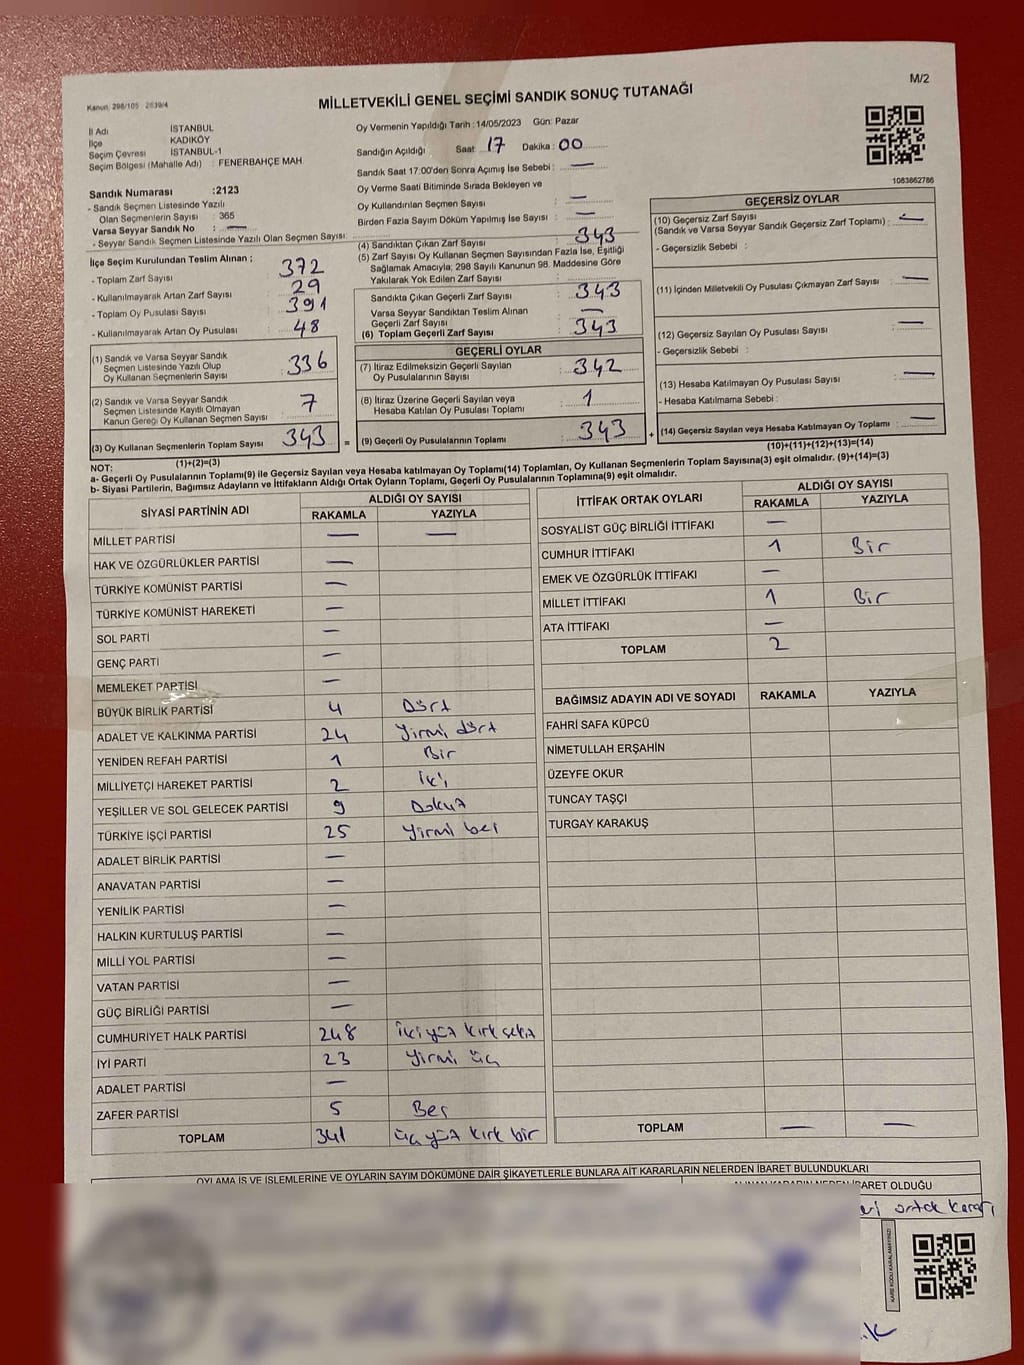 M/2
Kanun: 298/105 2839/4
MİLLETVEKİLİ GENEL SEÇİMİ SANDIK SONUÇ TUTANAĞI
İl Adı İSTANBUL
İlçe KADIKÖY
Seçim Çevresi İSTANBUL-1
Seçim Bölgesi (Mahalle Adı) : FENERBAHÇE MAH.
Oy Vermenin Yapıldığı Tarih : 14/05/2023 Gün: Pazar
Sandığın Açıldığı Saat : 17 Dakika : 00
Sandık Saat 17:00'den Sonra Açımış İse Sebebi : —
Oy Verme Saati Bitiminde Sırada Bekleyen ve
Oy Kullandırılan Seçmen Sayısı : —
Birden Fazla Sayım Döküm Yapılmış İse Sayısı : —
1083862786
Sandık Numarası :2123
- Sandık Seçmen Listesinde Yazılı
Olan Seçmenlerin Sayısı : 365
Varsa Seyyar Sandık No : —
- Seyyar Sandık Seçmen Listesinde Yazılı Olan Seçmen Sayısı:
İlçe Seçim Kurulundan Teslim Alınan ;
- Toplam Zarf Sayısı : 372
- Kullanılmayarak Artan Zarf Sayısı : 29
- Toplam Oy Pusulası Sayısı : 391
- Kullanılmayarak Artan Oy Pusulası : 48
(1) Sandık ve Varsa Seyyar Sandık
Seçmen Listesinde Yazılı Olup
Oy Kullanan Seçmenlerin Sayısı : 336
(2) Sandık ve Varsa Seyyar Sandık
Seçmen Listesinde Kayıtlı Olmayan
Kanun Gereği Oy Kullanan Seçmen Sayısı : 7
(3) Oy Kullanan Seçmenlerin Toplam Sayısı : 343 =
(1)+(2)=(3)
(4) Sandıktan Çıkan Zarf Sayısı : 343
(5) Zarf Sayısı Oy Kullanan Seçmen Sayısından Fazla İse, Eşitliği
Sağlamak Amacıyla, 298 Sayılı Kanunun 98. Maddesine Göre
Yakılarak Yok Edilen Zarf Sayısı :
Sandıkta Çıkan Geçerli Zarf Sayısı : 343
Varsa Seyyar Sandıktan Teslim Alınan
Geçerli Zarf Sayısı : —
(6) Toplam Geçerli Zarf Sayısı : 343
GEÇERLİ OYLAR
(7) İtiraz Edilmeksizin Geçerli Sayılan
Oy Pusulalarının Sayısı : 342
(8) İtiraz Üzerine Geçerli Sayılan veya
Hesaba Katılan Oy Pusulası Toplamı : 1
(9) Geçerli Oy Pusulalarının Toplamı : 343 +
GEÇERSİZ OYLAR
(10) Geçersiz Zarf Sayısı
(Sandık ve Varsa Seyyar Sandık Geçersiz Zarf Toplamı) : —
- Geçersizlik Sebebi :
(11) İçinden Milletvekili Oy Pusulası Çıkmayan Zarf Sayısı : —
(12) Geçersiz Sayılan Oy Pusulası Sayısı : —
- Geçersizlik Sebebi :
(13) Hesaba Katılmayan Oy Pusulası Sayısı : —
- Hesaba Katılmama Sebebi :
(14) Geçersiz Sayılan veya Hesaba Katılmayan Oy Toplamı : —
(10)+(11)+(12)+(13)=(14)
NOT:
a- Geçerli Oy Pusulalarının Toplamı(9) ile Geçersiz Sayılan veya Hesaba katılmayan Oy Toplamı(14) Toplamları, Oy Kullanan Seçmenlerin Toplam Sayısına(3) eşit olmalıdır. (9)+(14)=(3)
b- Siyasi Partilerin, Bağımsız Adayların ve İttifakların Aldığı Ortak Oyların Toplamı, Geçerli Oy Pusulalarının Toplamına(9) eşit olmalıdır.
SİYASİ PARTİNİN ADI ALDIĞI OY SAYISI
RAKAMLA YAZIYLA
MİLLET PARTİSİ — —
HAK VE ÖZGÜRLÜKLER PARTİSİ —
TÜRKİYE KOMÜNİST PARTİSİ —
TÜRKİYE KOMÜNİST HAREKETİ —
SOL PARTİ —
GENÇ PARTİ —
MEMLEKET PARTİSİ —
BÜYÜK BİRLİK PARTİSİ 4 Dört
ADALET VE KALKINMA PARTİSİ 24 Yirmi dört
YENİDEN REFAH PARTİSİ 1 Bir
MİLLİYETÇİ HAREKET PARTİSİ 2 İki
YEŞİLLER VE SOL GELECEK PARTİSİ 9 Dokuz
TÜRKİYE İŞÇİ PARTİSİ 25 Yirmi beş
ADALET BİRLİK PARTİSİ —
ANAVATAN PARTİSİ —
YENİLİK PARTİSİ —
HALKIN KURTULUŞ PARTİSİ —
MİLLİ YOL PARTİSİ —
VATAN PARTİSİ —
GÜÇ BİRLİĞİ PARTİSİ —
CUMHURİYET HALK PARTİSİ 248 İki yüz kırk sekiz
İYİ PARTİ 23 Yirmi üç
ADALET PARTİSİ —
ZAFER PARTİSİ 5 Beş
TOPLAM 341 üç yüz kırk bir
İTTİFAK ORTAK OYLARI ALDIĞI OY SAYISI
RAKAMLA YAZIYLA
SOSYALİST GÜÇ BİRLİĞİ İTTİFAKI —
CUMHUR İTTİFAKI 1 Bir
EMEK VE ÖZGÜRLÜK İTTİFAKI —
MİLLET İTTİFAKI 1 Bir
ATA İTTİFAKI —
TOPLAM 2
BAĞIMSIZ ADAYIN ADI VE SOYADI RAKAMLA YAZIYLA
FAHRİ SAFA KÜPCÜ
NİMETULLAH ERŞAHİN
ÜZEYFE OKUR
TUNCAY TAŞÇI
TURGAY KARAKUŞ
TOPLAM — —
OYLAMA İŞ VE İŞLEMLERİNE VE OYLARIN SAYIM DÖKÜMÜNE DAİR ŞİKAYETLERLE BUNLARA AİT KARARLARIN NELERDEN İBARET BULUNDUKLARI
ALINAN KARARIN NEDEN İBARET OLDUĞU
ortak kararı
KARE KODU KARALAMAYINIZ!